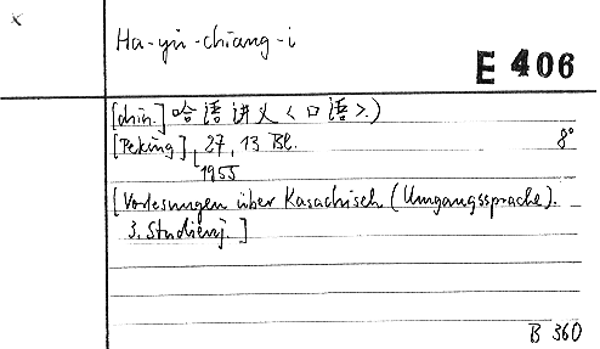 x
Ha-yü-chiang-i
E 406
[chin.] 哈语讲义〈口语〉)
[Peking], 27, 13 Bl. 8°
[1955
[Vorlesungen über Kasachisch (Umgangssprache).
3. Studienj.]
B 360